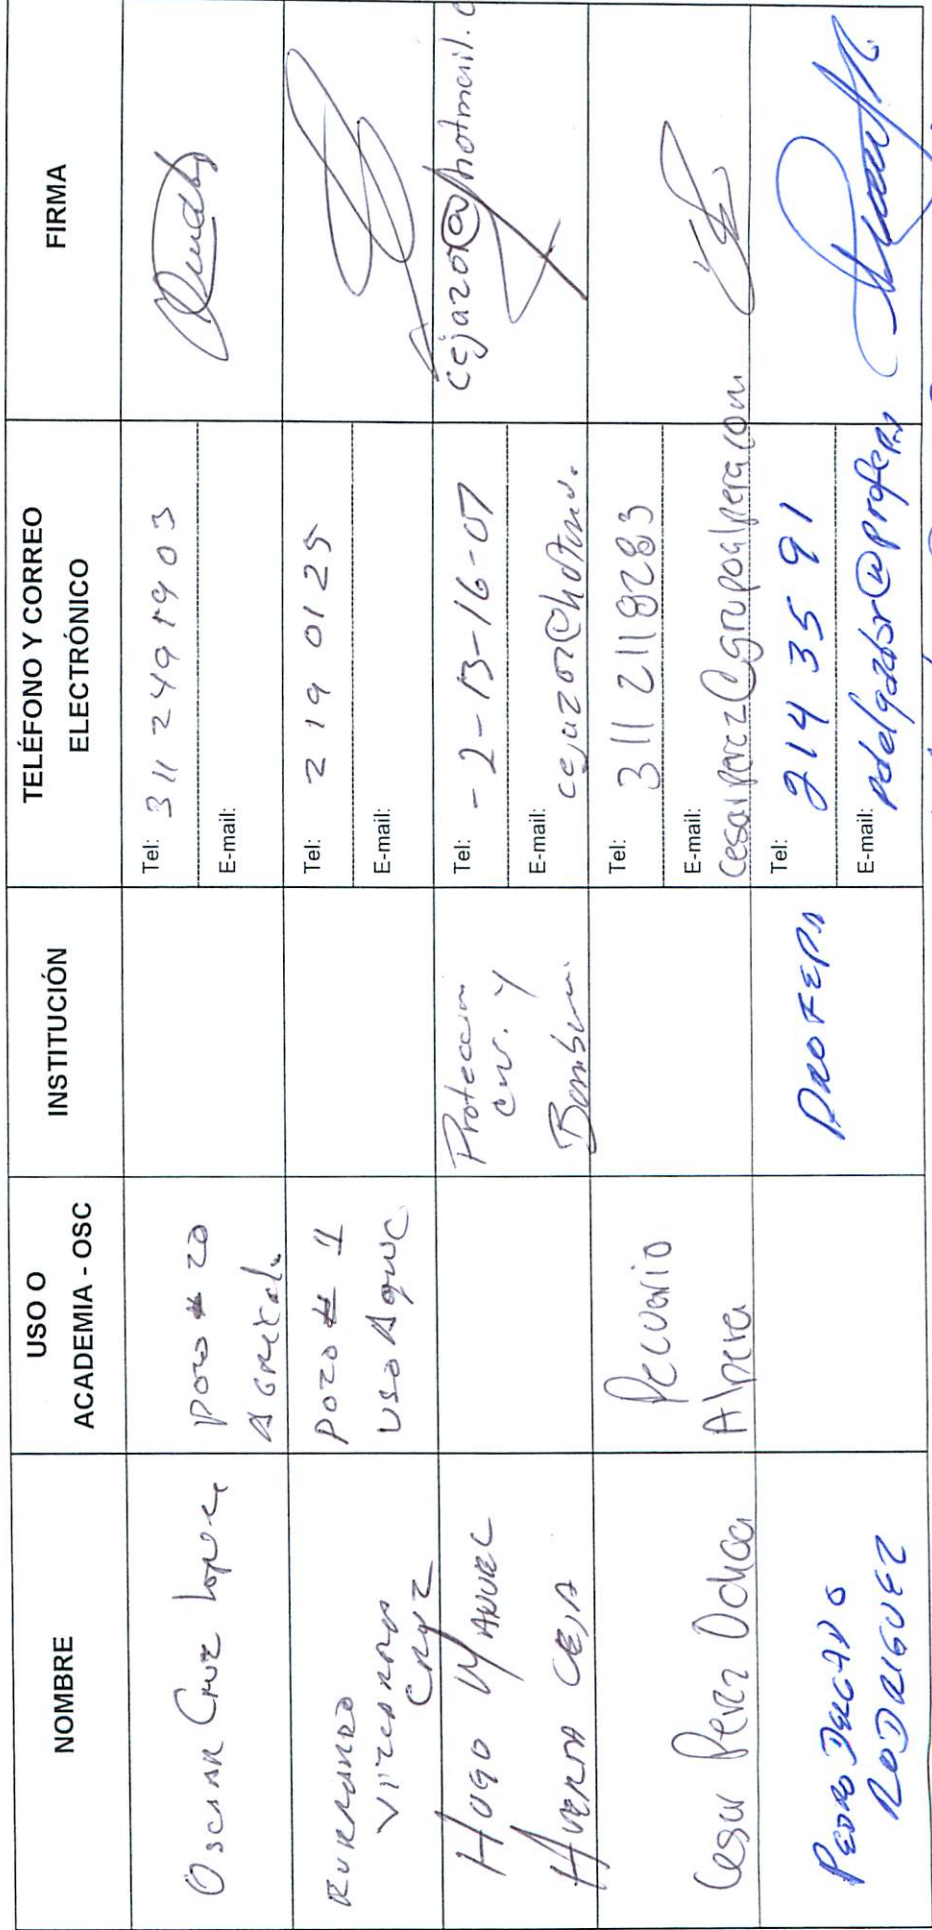 NOMBRE
USO O
ACADEMIA - OSC
INSTITUCIÓN
TELÉFONO Y CORREO
ELECTRÓNICO
FIRMA
Oscar Cruz Lopez
pozo # 20
Agricola
Tel: 311 249 1903
E-mail:
Vizcarra
Cruz
Pozo # 11
uso Agric
Tel: 219 0125
E-mail:
Hugo Manuel
Huerta Ceja
Proteccion
Civ. y
Tel: - 2-13-16-07
E-mail:
cejazor@hotmail.c
Cesar Perez Ochoa
Pecuario
Alpera
Tel: 311 2118283
E-mail:
cesarperez@grupoalpera.com
PEDRO DELGADO
RODRIGUEZ
PROFEPA
Tel: 214 35 91
E-mail: pdelgador@profepa